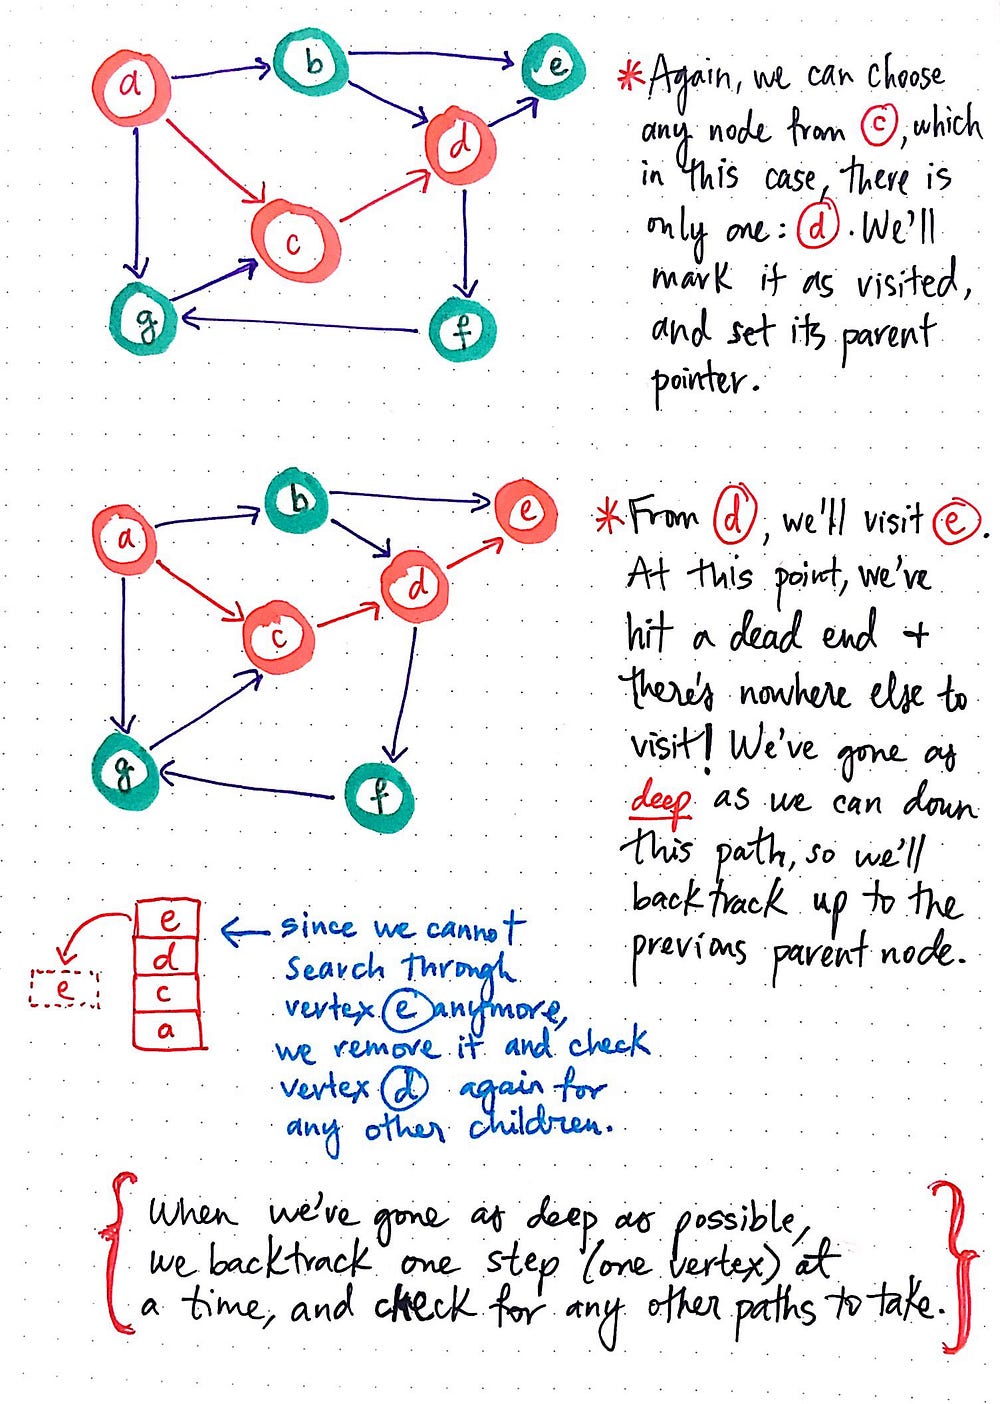 a
b
e
d
c
g
f
*Again, we can choose
any node from c, which
in this case, there is
only one: d. We'll
mark it as visited,
and set its parent
pointer.
a
b
e
d
c
g
f
*From d, we'll visit e.
At this point, we've
hit a dead end +
there's nowhere else to
visit! We've gone as
deep as we can down
this path, so we'll
backtrack up to the
previous parent node.
e
d
c
a
e
since we cannot
search through
vertex e anymore,
we remove it and check
vertex d again for
any other children.
When we've gone as deep as possible,
we backtrack one step (one vertex) at
a time, and check for any other paths to take.